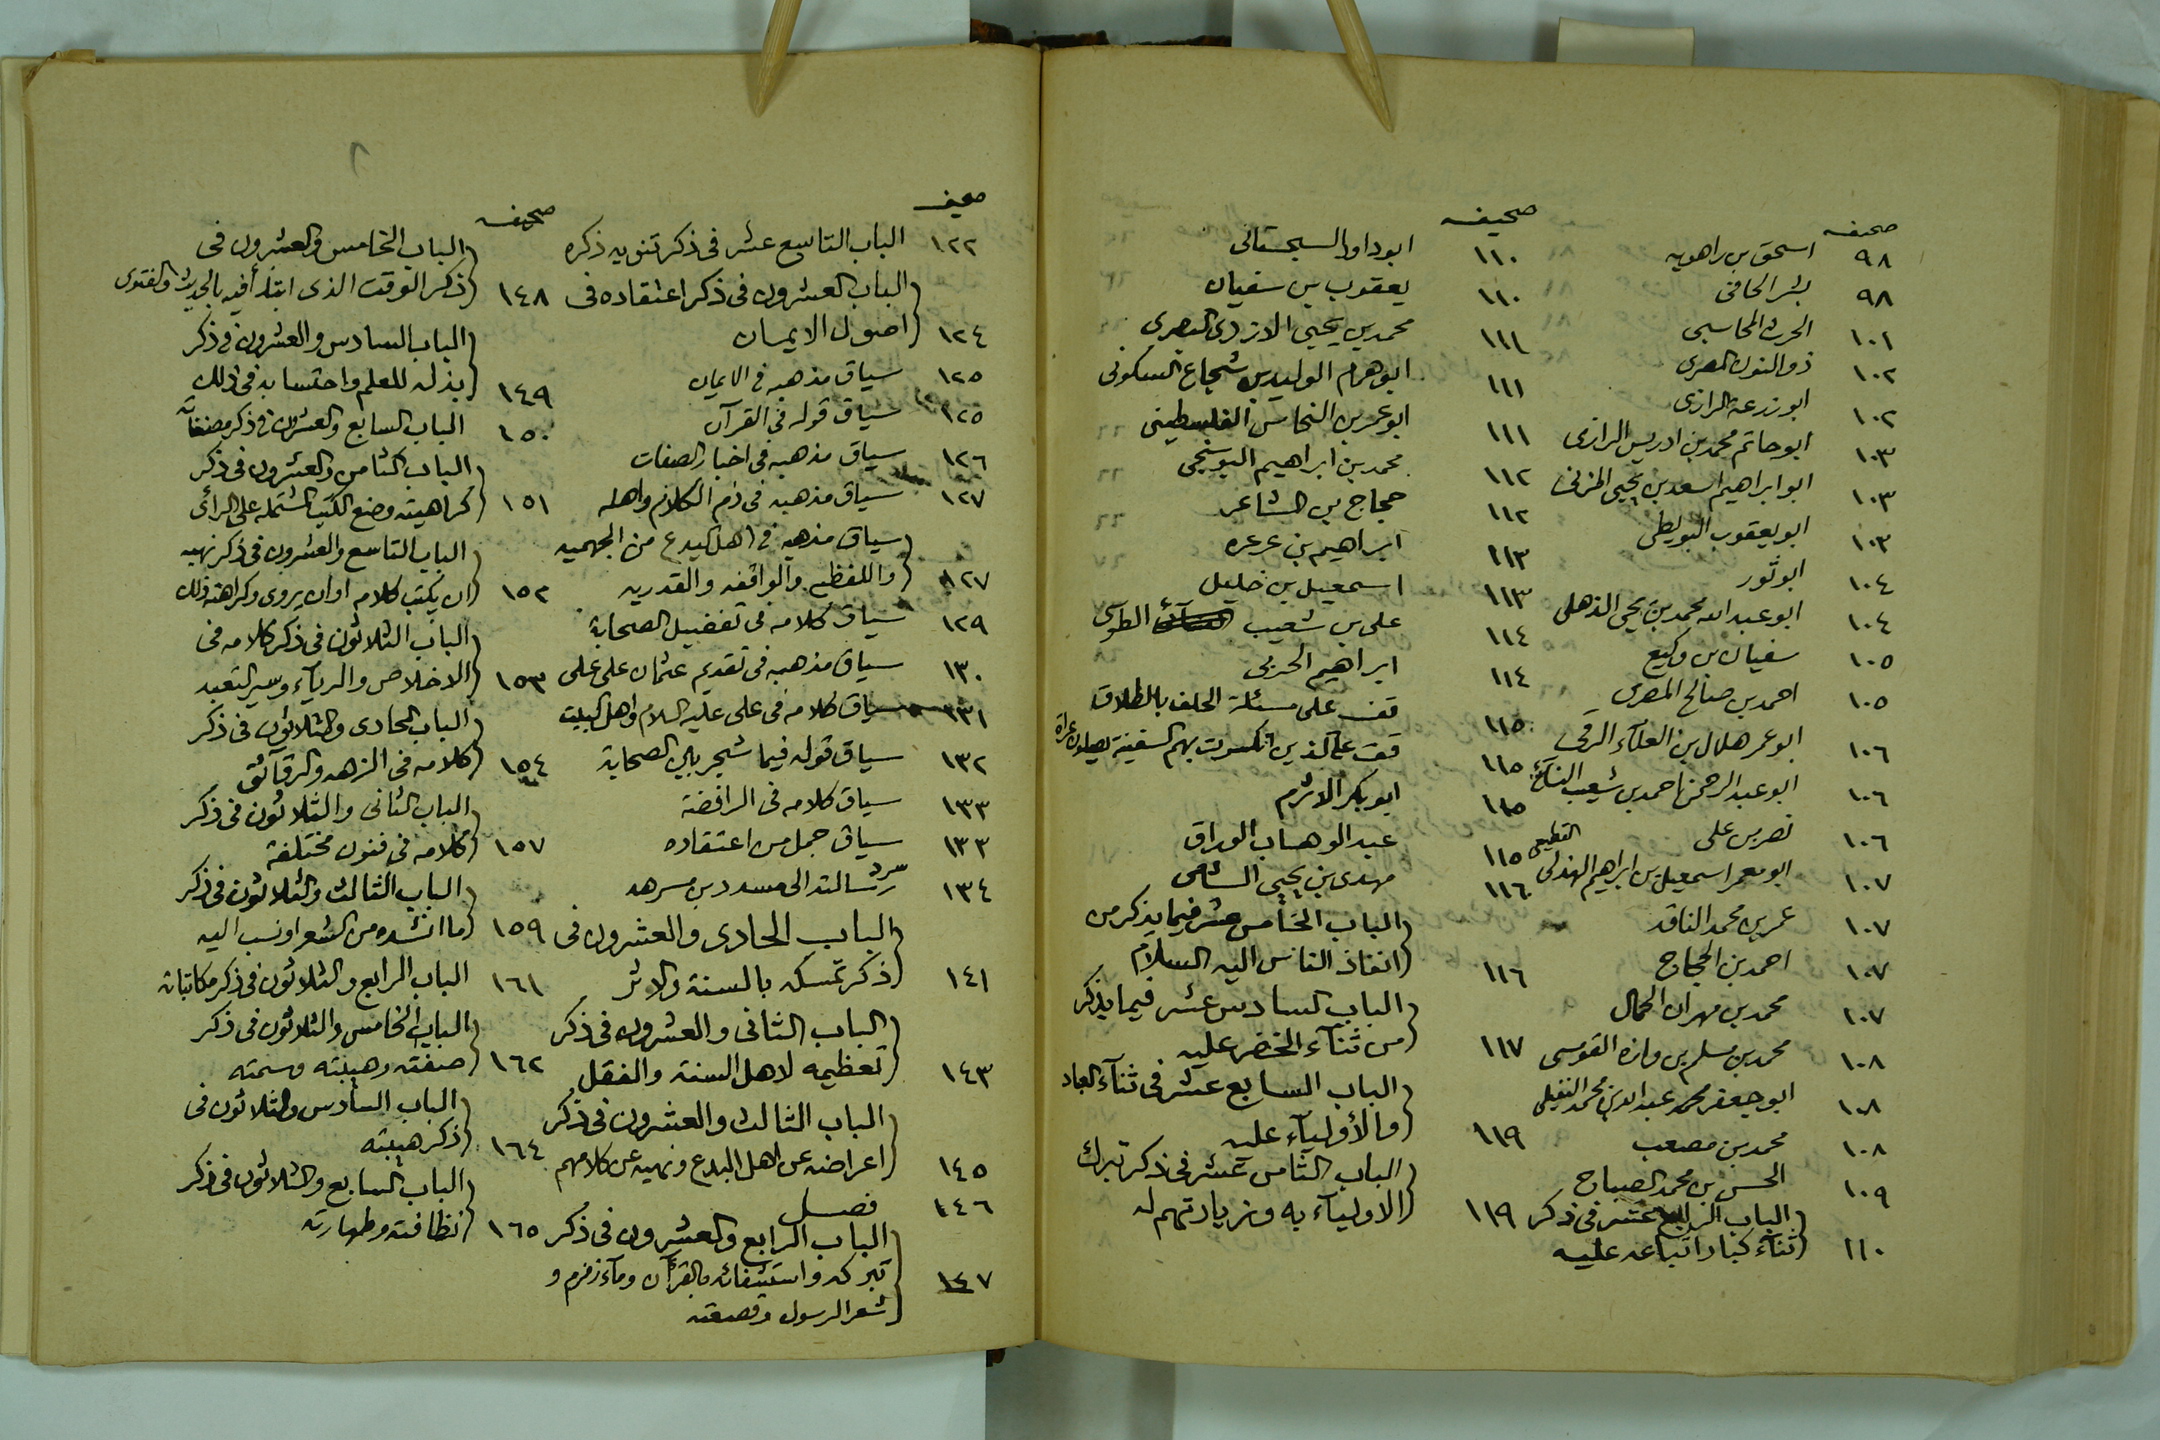 صحيفه
٩٨ اسحق بن راهويه
٩٨ بشر الحافى
١٠١ الحرث المحاسبى
١٠٢ ذو النون المصرى
١٠٢ ابو زرعة الرازى
١٠٣ ابو حاتم محمد بن ادريس الرازى
١٠٣ ابو ابراهيم اسعد بن يحيى المزنى
١٠٣ ابو يعقوب البويطى
١٠٤ ابو ثور
١٠٤ ابو عبد الله محمد بن يحيى الذهلى
١٠٥ سفيان بن وكيع
١٠٥ احمد بن صالح المصرى
١٠٦ ابو عمر هلال بن العلآء الرقى
١٠٦ ابو عبد الرحمن احمد بن شعيب النسآئى
١٠٦ نصر بن على
١٠٧ ابو معمر اسمعيل بن ابراهيم الهذلى القطيعى
١٠٧ عمر بن محمد الناقد
١٠٧ احمد بن الحجاج
١٠٧ محمد بن مهران الجمال
١٠٨ محمد بن مسلم بن وارة القومسى
١٠٨ ابو جعفر محمد عبد الله بن محمد النفيلى
١٠٨ محمد بن مصعب
١٠٩ الحسن بن محمد الصباح
الباب الرابع عشر فى ذكر
١١٠ ثنآء كبار اتباعه عليه
صحيفه
١١٠ ابو داود السجستانى
١١٠ يعقوب بن سفيان
١١١ محمد بن يحيى الازدى البصرى
١١١ ابو همام الوليد بن شجاع السكونى
١١١ ابو عمر بن النحاس الفلسطينى
١١٢ محمد بن ابراهيم البوسنجى
١١٢ حجاج بن الشاعر
١١٣ ابراهيم بن عرعره
١١٣ اسمعيل بن خليل
١١٤ على بن شعيب الطوسى
١١٤ ابراهيم الحربى
١١٥ قف على مسئلة الحلف بالطلاق
١١٥ قف على الذين انكسرت بهم السفينة يصلون عراة
١١٥ ابو بكر الاثرم
١١٥ عبد الوهاب الوراق
١١٦ مهدى بن يحيى الشامى
الباب الخامس عشر فيما يذكر من
١١٦ انفاذ الناس اليه السلام
الباب السادس عشر فيما يذكر
١١٧ من ثنآء الخضر عليه
الباب السابع عشر فى ثنآء العباد
١١٩ والأوليآء عليه
الباب الثامن عشر فى ذكر تبرك
١١٩ الاوليآء به وزيارتهم له
صحيف
١٢٢ الباب التاسع عشر فى ذكر تنويه ذكره
الباب العشرون فى ذكر اعتقاده فى
١٢٤ اصول الايمان
١٢٥ سياق مذهبه فى الايمان
١٢٥ سياق قوله فى القرآن
١٢٦ سياق مذهبه فى اخبار الصفات
١٢٧ سياق مذهبه فى ذم الكلام واهله
سياق مذهبه فى اهل البدع من الجهميه
١٢٧ واللفظيه والواقفه والقدريه
١٢٩ سياق كلامه فى تفضيل الصحابة
١٣٠ سياق مذهبه فى تقديم عثمان على على
١٣١ سياق كلامه فى على عليه السلام واهل البيت
١٣٢ سياق قوله فيما شجر بين الصحابة
١٣٣ سياق كلامه فى الرافضة
١٣٣ سياق جمل من اعتقاده
١٣٤ سرد رسالته الى مسدد بن مسرهد
الباب الحادى والعشرون فى
١٤١ ذكر تمسكه بالسنة والاثر
الباب الثانى والعشرون فى ذكر
١٤٣ تعظيمه لاهل السنة والفقل
الباب الثالث والعشرون فى ذكر
١٤٥ اعراضه عن اهل البدع ونهيه عن كلامهم
١٤٦ فصل
الباب الرابع والعشرون فى ذكر
١٤٧ تبركه واستشفائه بالقرآن ومآء زمزم و
شعر الرسول وقصعته
صحيفه
الباب الخامس والعشرون فى
١٤٨ ذكر الوقت الذى ابتدأ فيه بالحديث والفتوى
الباب السادس والعشرون فى ذكر
١٤٩ بذله للعلم واحتسابه فى ذلك
١٥٠ الباب السابع والعشرون فى ذكر مصنفاته
الباب الثامن والعشرون فى ذكر
١٥١ كراهيته وضع الكتب المشتملة على الرأى
الباب التاسع والعشرون فى ذكر نهيه
١٥٢ ان يكتب كلامه او ان يروى وكراهته ذلك
الباب الثلاثون فى ذكر كلامه فى
١٥٣ الاخلاص والريآء وسير التعبد
الباب الحادى والثلاثون فى ذكر
١٥٤ كلامه فى الزهد والرقآئق
الباب الثانى والثلاثون فى ذكر
١٥٧ كلامه فى فنون مختلفة
الباب الثالث والثلاثون فى ذكر
١٥٩ ما انشده من الشعر او نسب اليه
١٦١ الباب الرابع والثلاثون فى ذكر مكاتباته
الباب الخامس والثلاثون فى ذكر
١٦٢ صفته وهيئته وسمته
الباب السادس والثلاثون فى
١٦٤ ذكر هيبته
الباب السابع والثلاثون فى ذكر
١٦٥ نظافته وطهارته